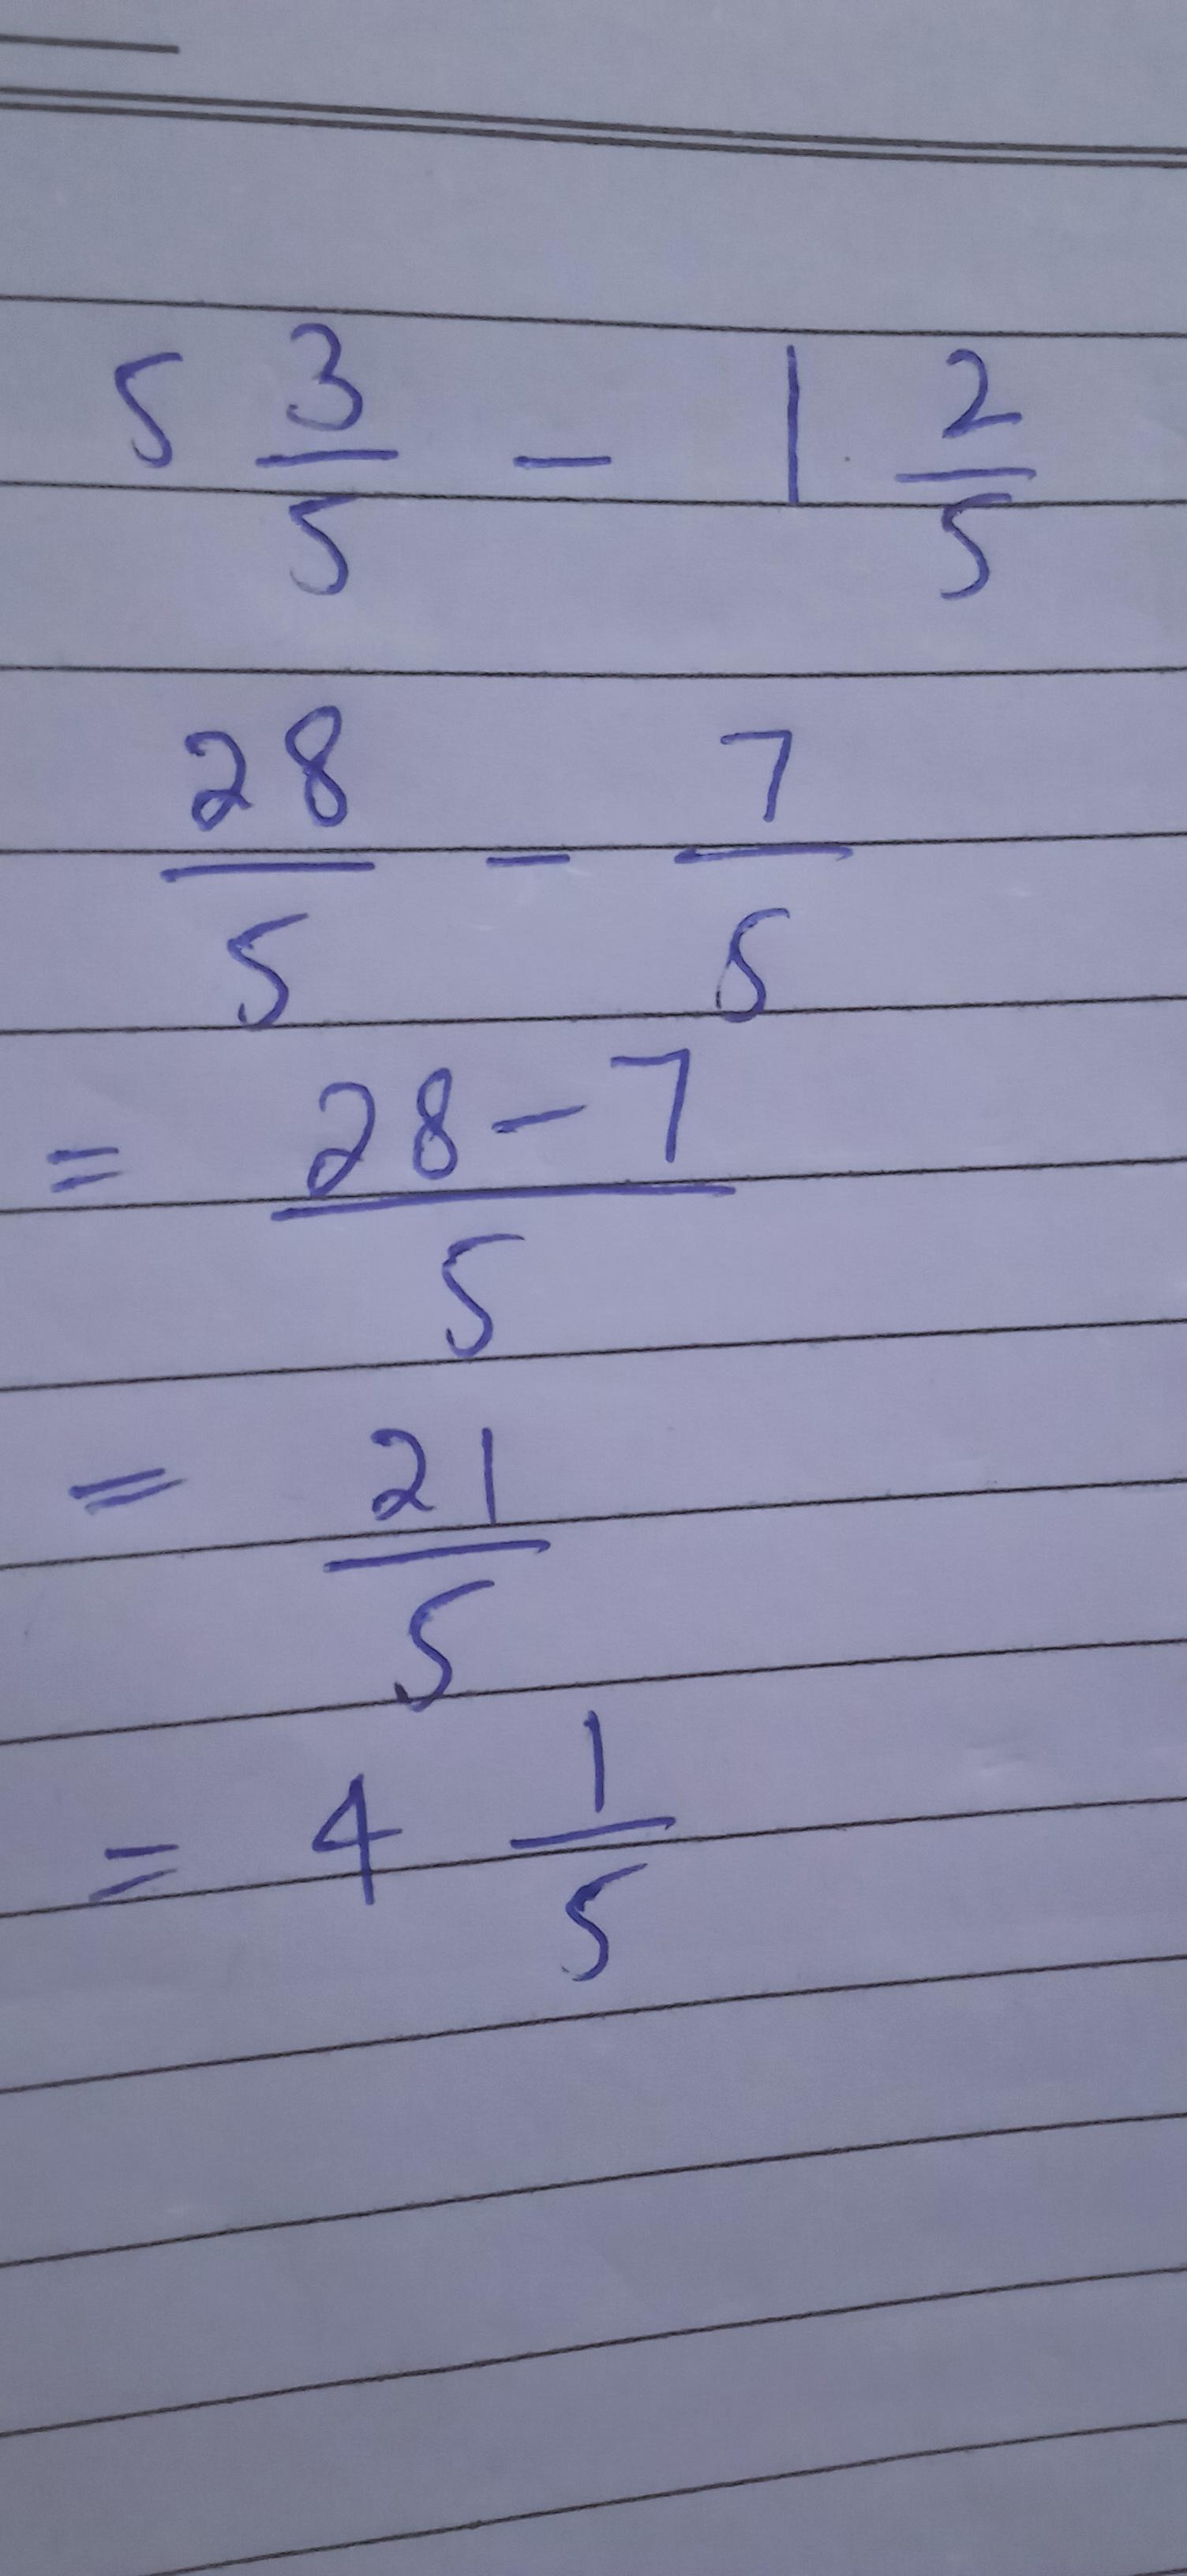 5 3/5 - 1 2/5
28/5 - 7/5
= 28-7/5
= 21/5
= 4 1/5